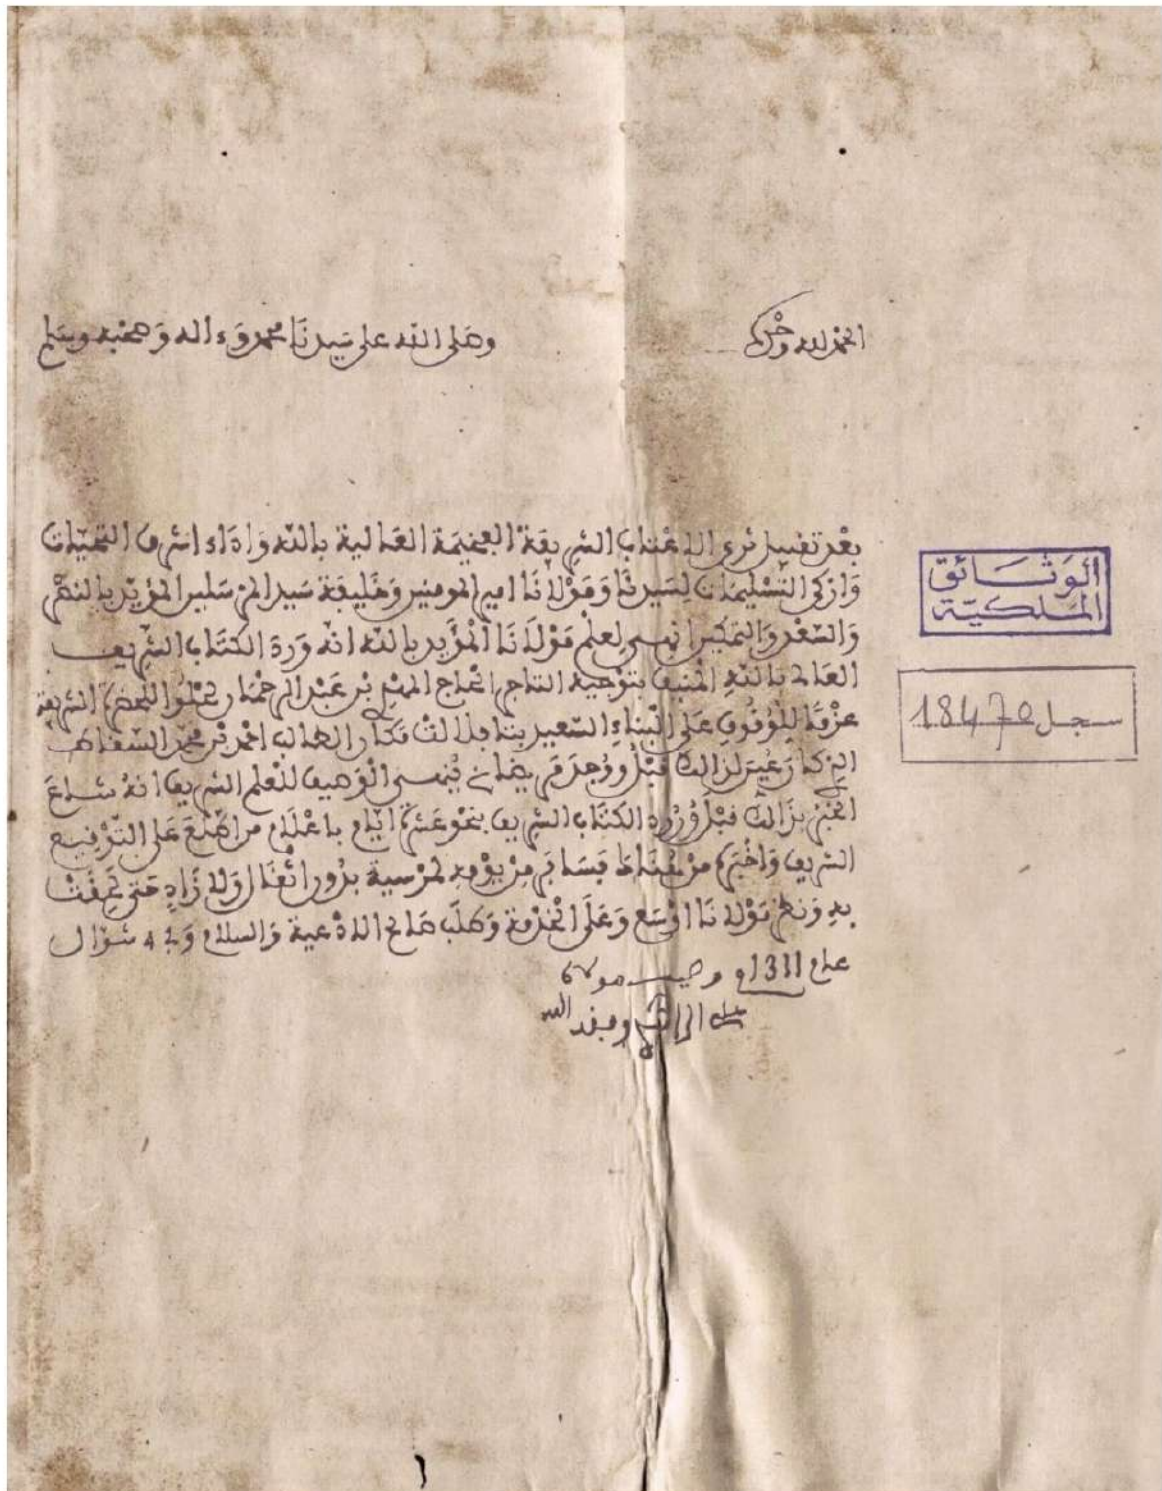 الحمد لله وحده
وصلى الله على سيدنا محمد وءاله وصحبه وسلم
بعد تقبيل ثرى الاعتاب الشريفة العظيمة العالية بالله واداء اشرف التحيات
وازكى التسليمات لسيدنا ومولانا امير المومنين وخليفة سيد المرسلين المؤيد بالنصر
والسعد والتمكين انهي لعلم مولانا المؤيد بالله انه ورد الكتاب الشريف
العالي بالله المنيف بتوجيه التاجر الحاج بن عبد الرحمان الحضرة الشريفة
عزما للوقوف على البناء السعيد بتافيلالت فكان الطالب احمد بن محمد السقاط
الذكار عين لذالك قبل ووجد في ينهي الوصيف للعلم الشريف انه شاع
الخبر بذالك قبل ورود الكتاب الشريف بنحو عشرة ايام باعلام من اطلع على التوقيع
الشريف واخبره من هناك فسافر من يومه لمرسية بدون اثقال ولا زاد حتى لحقت
به ونظر مولانا اوسع وعلى الخدمة وطلب صالح الادعية والسلام وفي 4 شوال
عام 1311 وصيف مولاي
وفقه الله
الوثائق
الملكية
سجل 18470